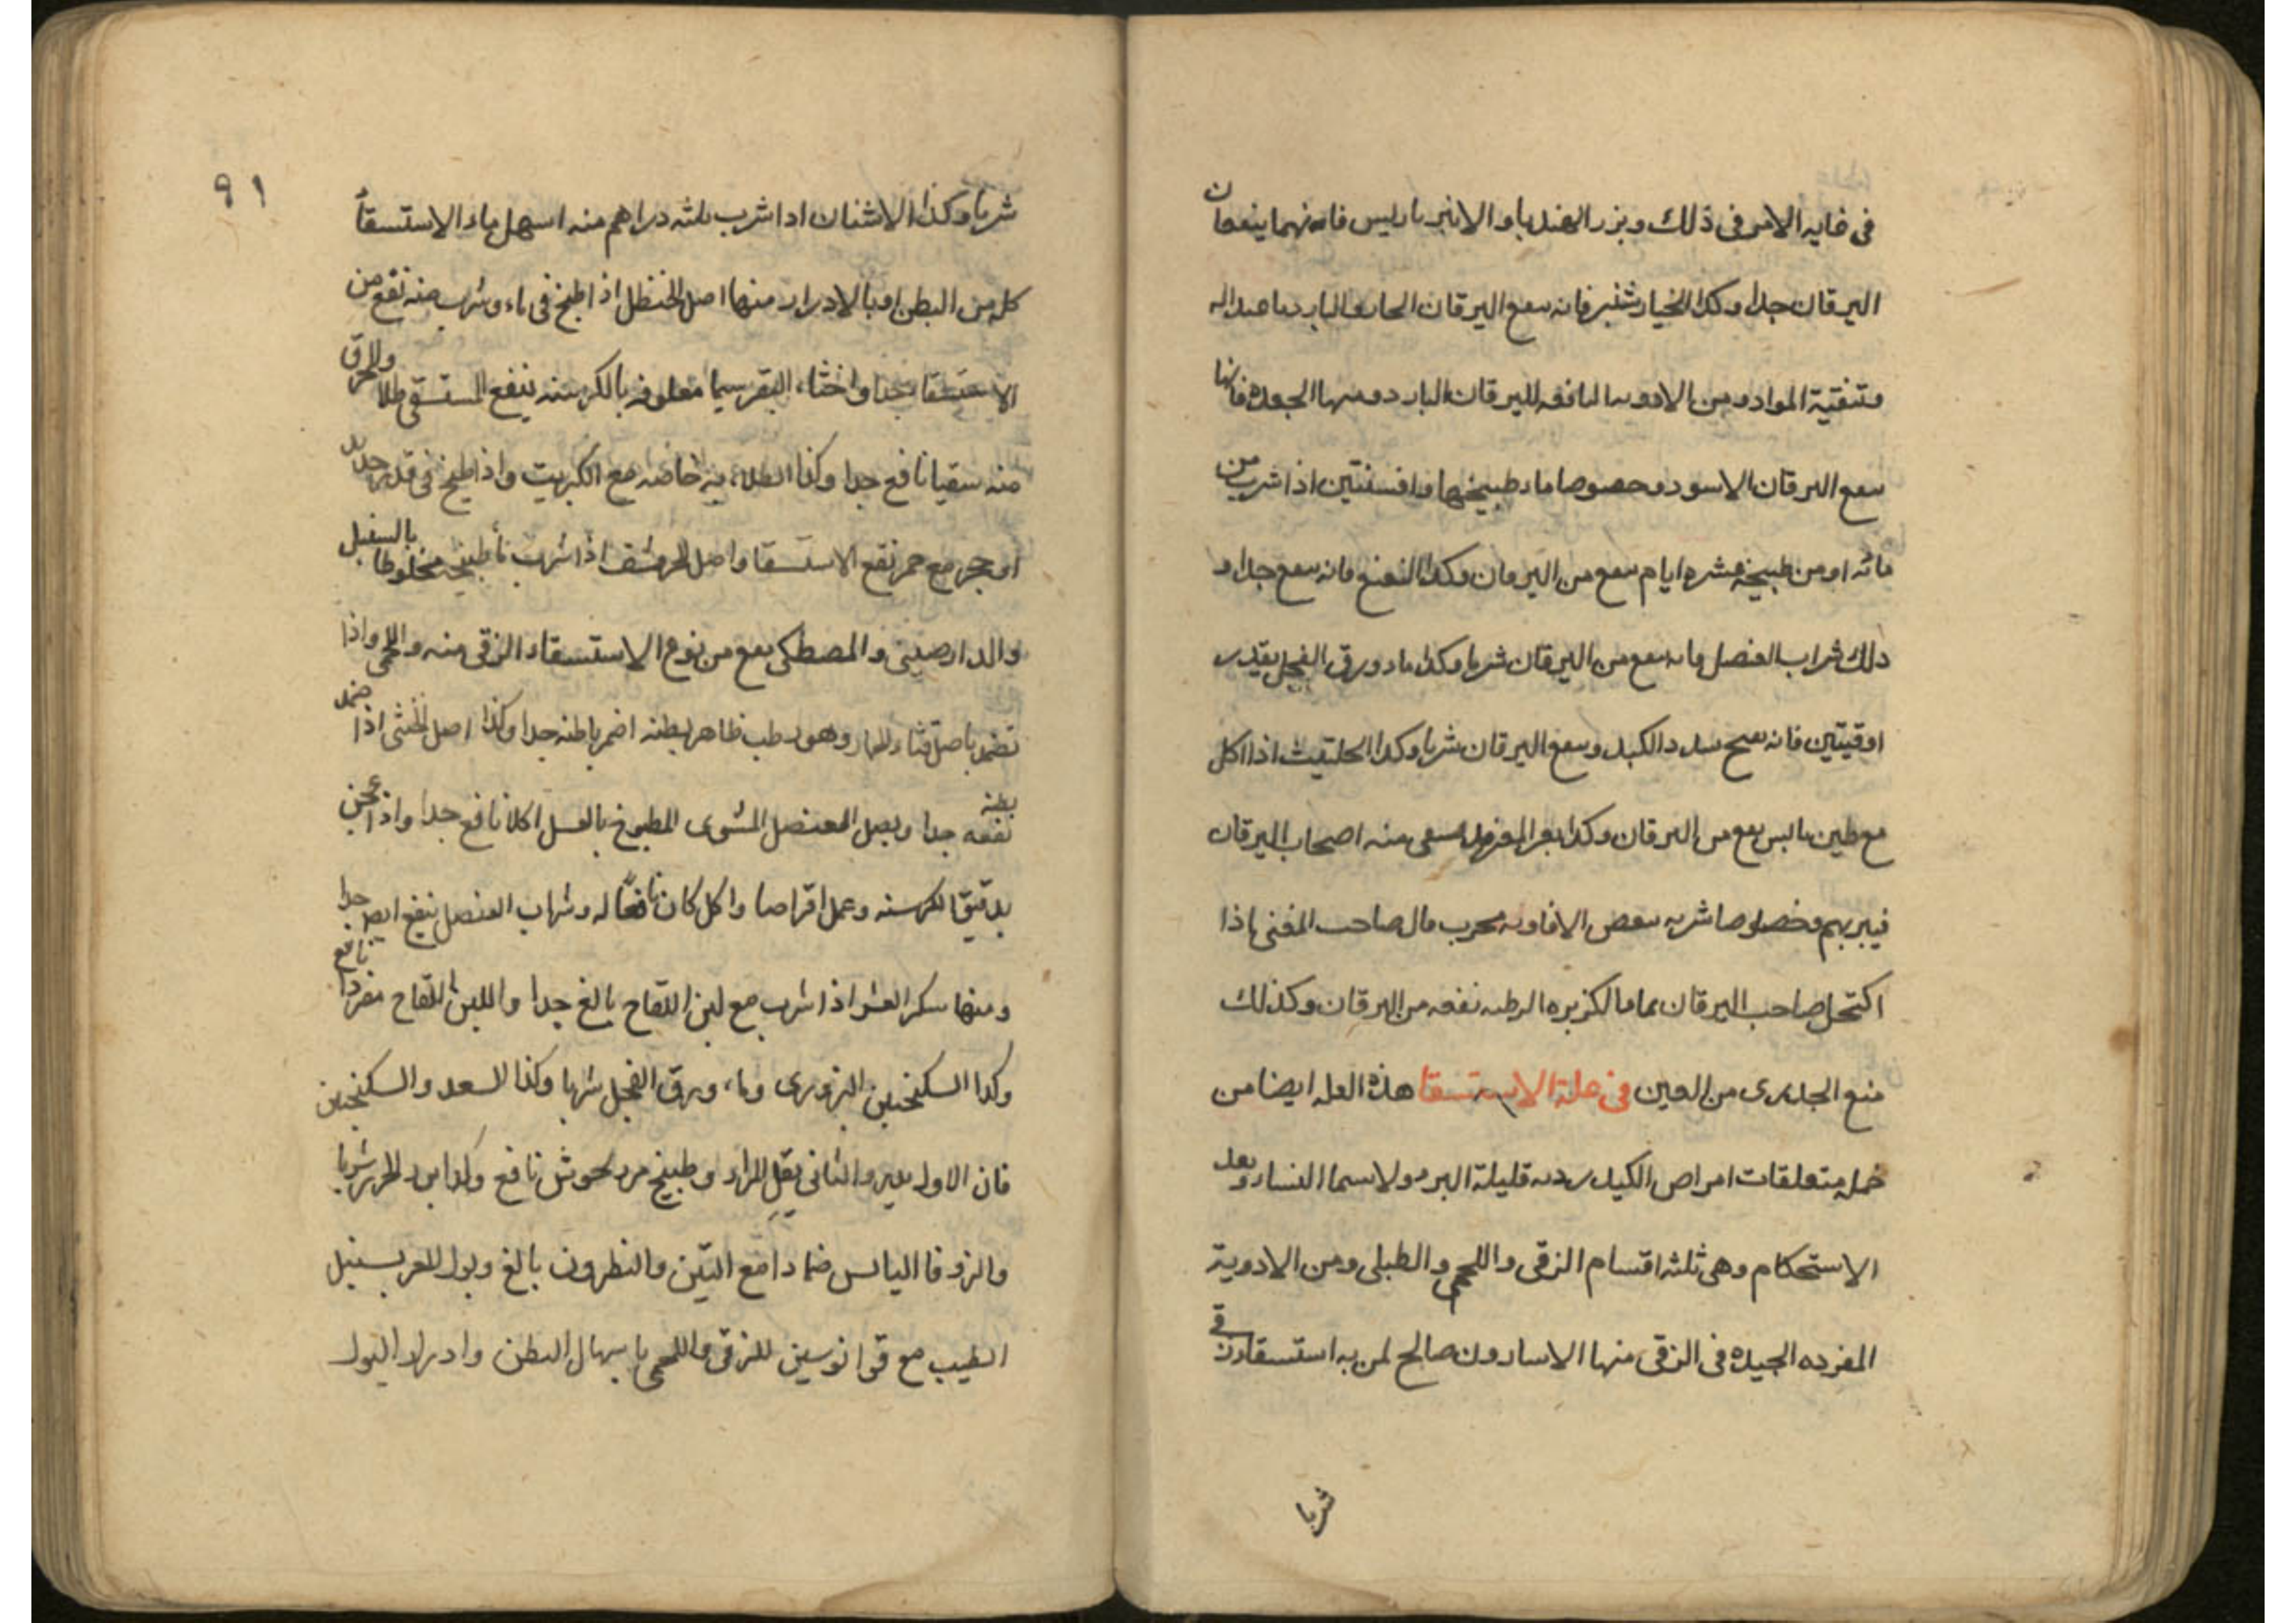 في غاية الامر في ذلك وبزر الهندبا والانبرباريس فانهما ينفعان
اليرقان جدا وكذا الخيارشنبر فانه ينفع اليرقان الحار والبارد
وتنقية المواد ومن الادويه النافعه لليرقان البارد ومنها الجعده فانها
ينفع اليرقان الاسود وخصوصا ماء طبيخها وافسنتين اذا شرب من
مائه او من طبيخه عشره ايام ينفع من اليرقان وكذا النعنع فانه ينفع جدا و
ذلك شراب العنصل فانه ينفع من اليرقان شربا وكذا ماء ورق الفجل بقدر
اوقيتين فانه يفتح سدد الكبد وينفع اليرقان شربا وكذا الحلتيت اذا اكل
مع طين يابس ينفع من اليرقان وكذا بعر المعز يسقى منه اصحاب اليرقان
فيبريهم وخصوصا شربه ببعض الافاويه مجرب قال صاحب المغنى اذا
اكتحل صاحب اليرقان بماء الكزبره الرطبه نفعه من اليرقان وكذلك
منع الجدرى من العين في علة الاستسقا هذه العله ايضا من
جمله متعلقات امراض الكبد رديه قليلة البرء ولاسيما النساء وبعد
الاستحكام وهى ثلثه اقسام الزقى واللحمى والطبلى ومن الادوية
المفرده الجيده في الزقى منها الاسارون صالح لمن به استسقاء زقى
شربا
٩١
شربا وكذا الاشنان اذا شرب ثلثه دراهم منه اسهل ماء الاستسقأ
كله من البطن او بالادرار ومنها اصل الحنظل اذا طبخ في ماء وشرب منه نفع من
الاستسقا جدا واخثاء البقر سيما معلوفه بالكرسنه ينفع المستسقى طلا
منه سقيا نافع جدا وكذا الطلاء به خاصه مع الكبريت واذا طبخ في قدر جديد
او حجر مع خمر نفع الاستسقا واصل الحرشف اذا شرب طبيخه مخلوطا بالسنبل
والدارصينى والمصطكى ينفع من نوع الاستسقاء الزقى منه واللحمى واذا
تضمد باصل قثاء الحمار وهو رطب ظاهر بطنه اضمر باطنه جدا وكذا اصل الخنثى اذا ضمد
بطنه
نفعه جدا وبصل العنصل المشوى المطبوخ بالعسل اكلا نافع جدا واذا عجن
بدقيق الكرسنه وعمل اقراصا واكل كان نافعًا له وشراب العنصل ينفع ايضا جدا
ومنها سكر العشر اذا شرب مع لبن اللقاح بالغ جدا واللبن اللقاح مفردا نافع
وكذا السكنجبين البزورى وماء ورق الفجل شربا وكذا السعد والسكنجبين
فان الاول يدر والثانى يقل المرار وطبيخ مردقوش نافع وكذا شربا
والزوفا اليابس ضمادا مع التين والنطرون بالغ وبول المعز بسنبل
الطيب مع للزقى واللحمى باسهال البطن وادرار البول